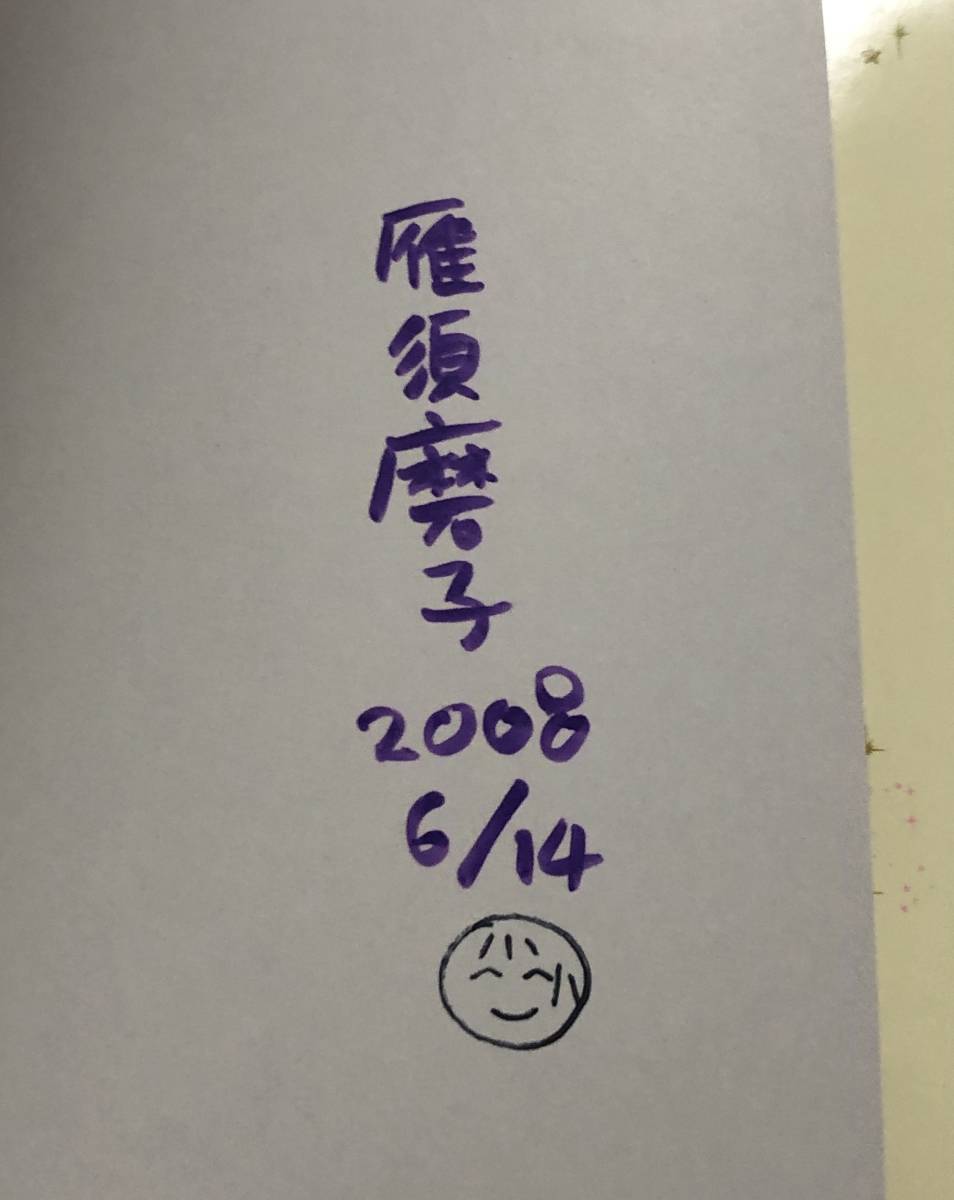 雁須磨子
2008
6/14